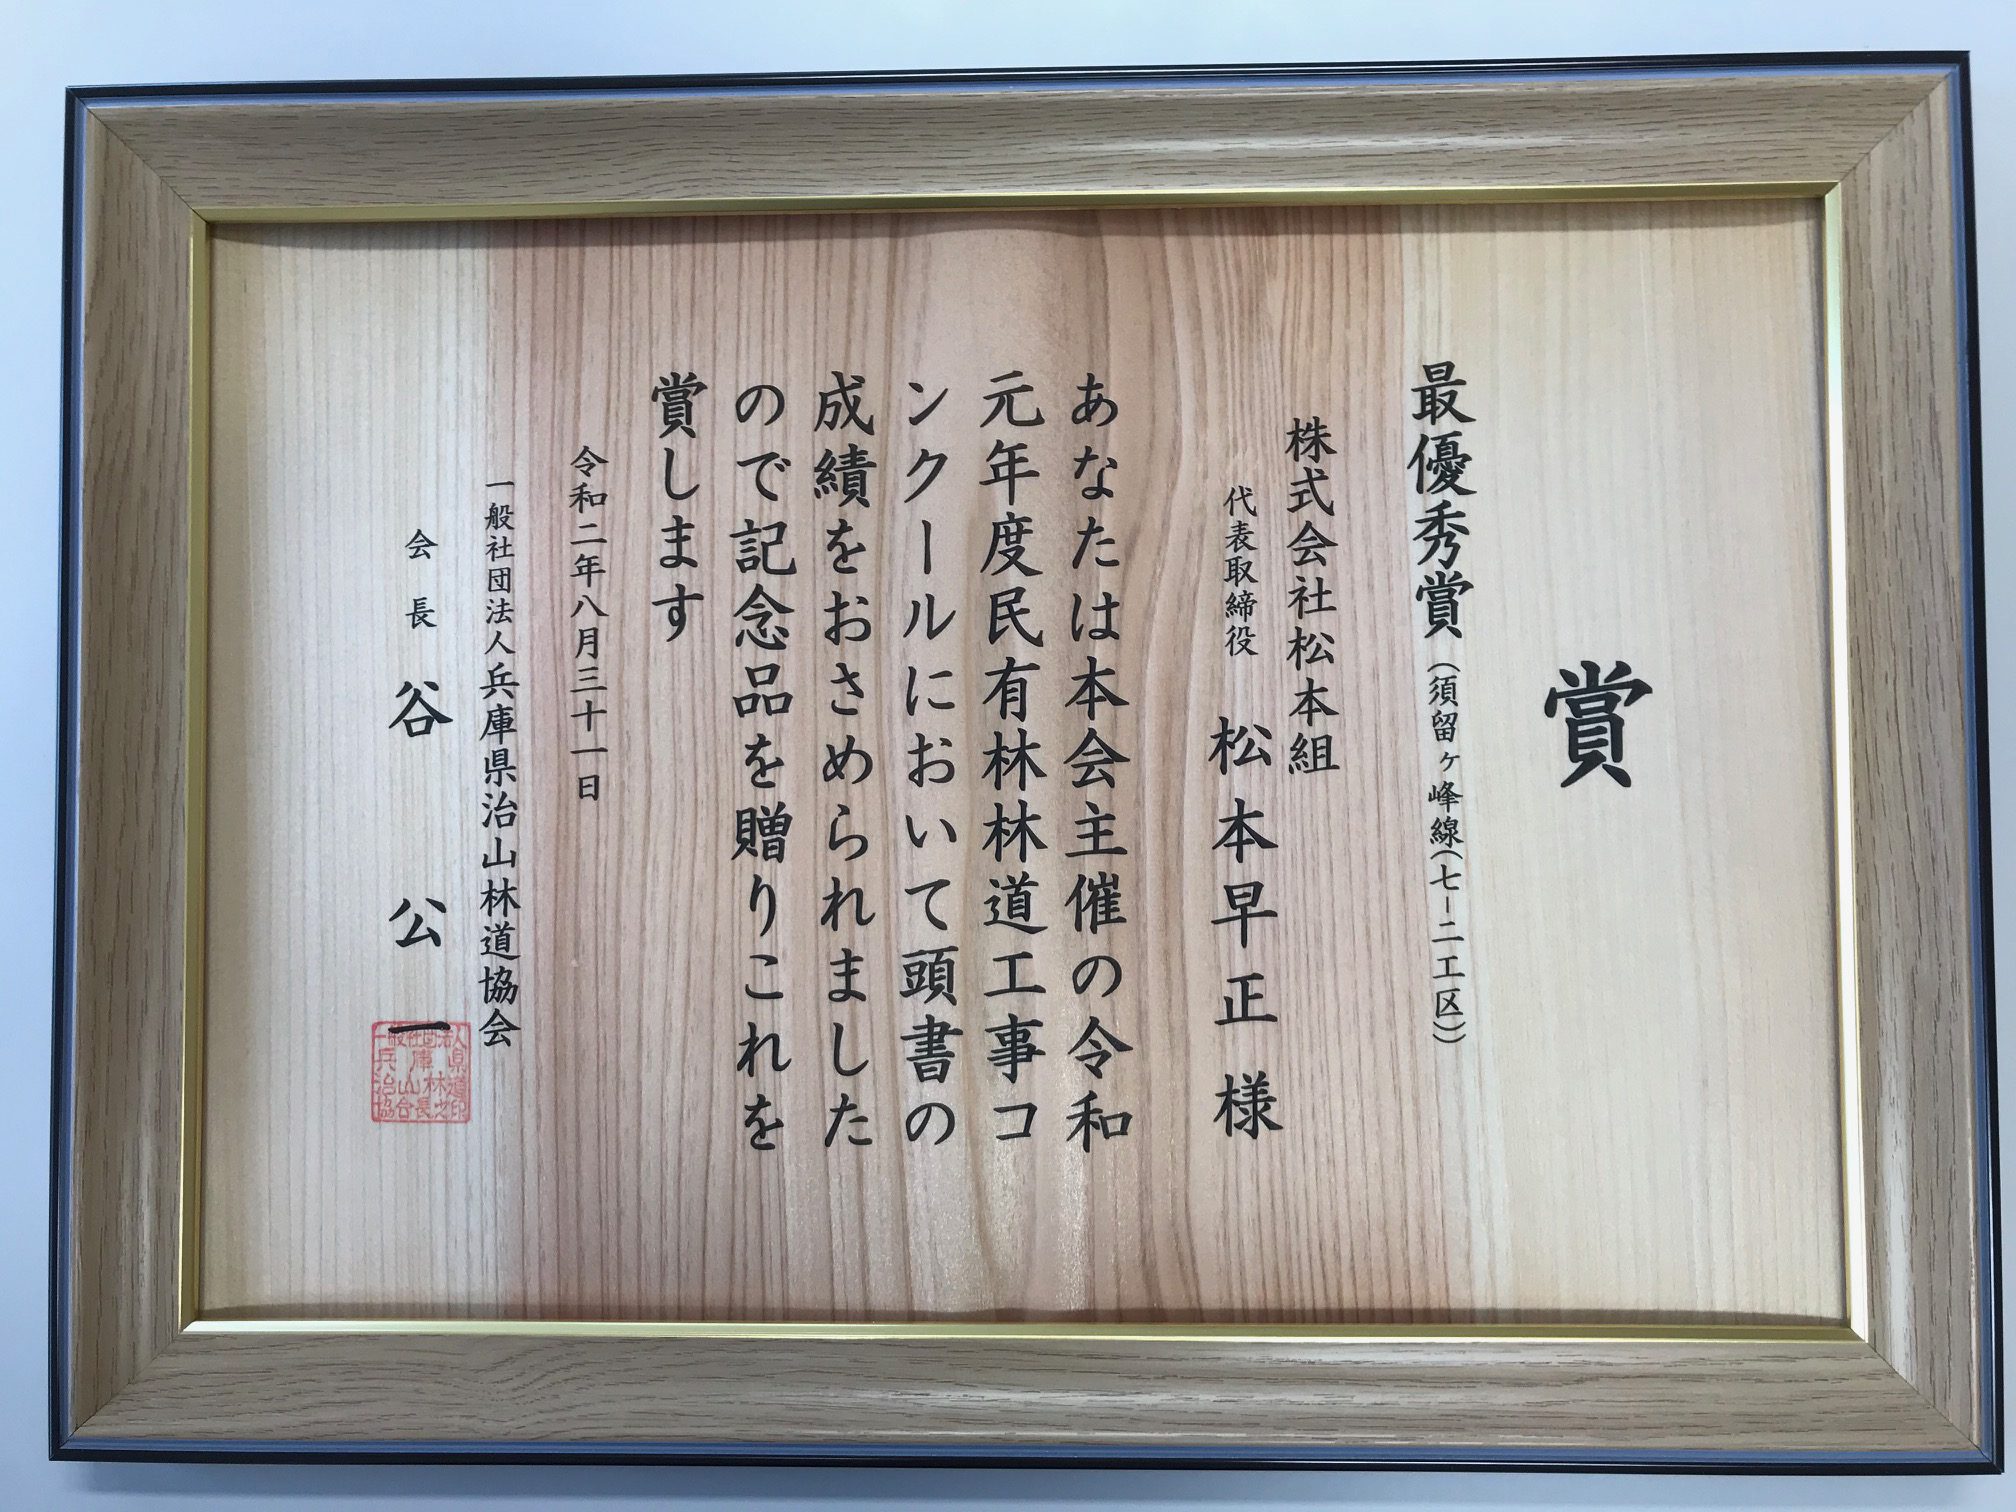 賞
最優秀賞(須留ヶ峰線(七-二工区))
株式会社松本組
代表取締役 松本早正様
あなたは本会主催の令和
元年度民有林林道工事コ
ンクールにおいて頭書の
成績をおさめられました
ので記念品を贈りこれを
賞します
令和二年八月三十一日
一般社団法人兵庫県治山林道協会
会長 谷公一